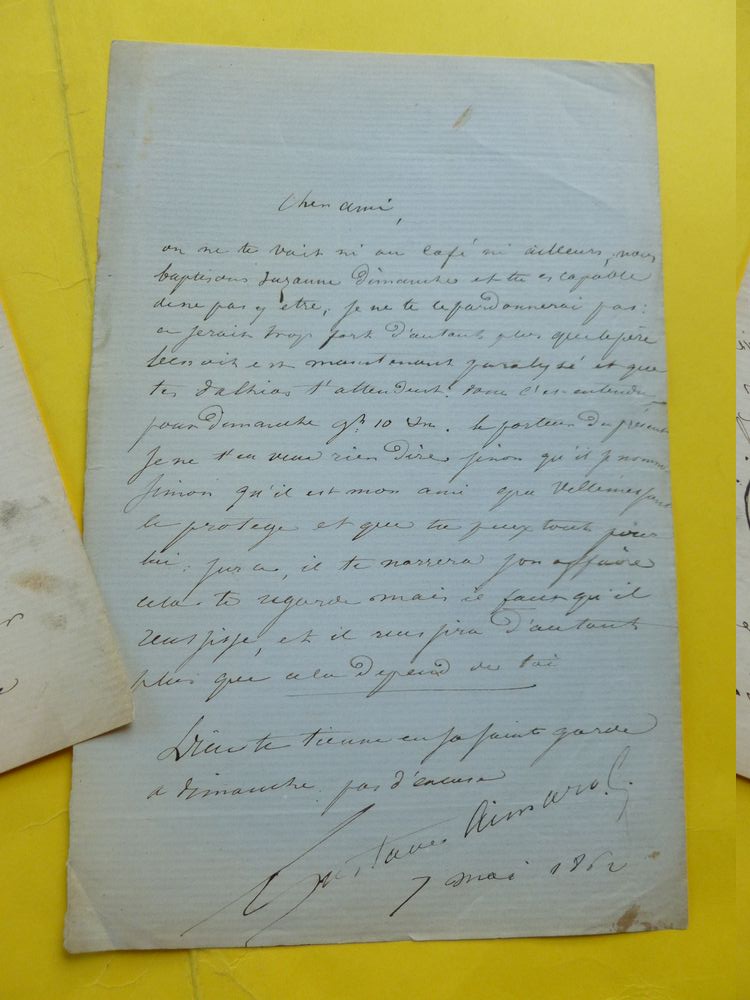 Cher ami,
on ne te voit ni au café ni ailleurs, nous
baptisons Suzanne dimanche et tu es capable
de ne pas y être, je ne te le pardonnerai pas.
ce serait trop fort d'autant plus que le père
Benoit est maintenant paralysé et que
tes dalhias t'attendent. donc c'est entendu
pour dimanche 10 le porteur du présent
Je ne t'en veux rien dire sinon qu'il se nomme
Simon qu'il est mon ami que Villemessant
le protège et que tu peux tout pour
lui. il te narrera son affaire
cela te regarde mais il faut qu'il
réussisse, et il réussira d'autant
plus que cela dépend de toi
Dieu te tienne en sa sainte garde
a dimanche pas d'excuse
Gustave Aimard
7 mai 1862